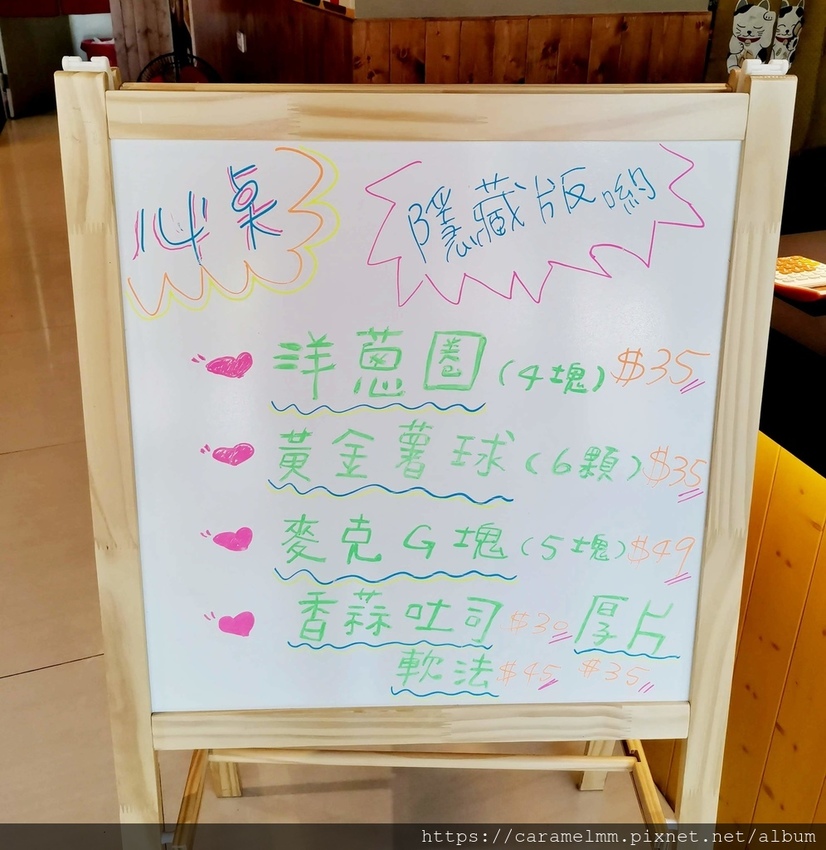 小桌
隱藏版喲
洋蔥圈(4塊)$35
黃金薯球(6顆)$35
麥克G塊(5塊)$49
香蒜吐司$30 厚片
軟法$45 $35
https://caramelmm.pixnet.net/album